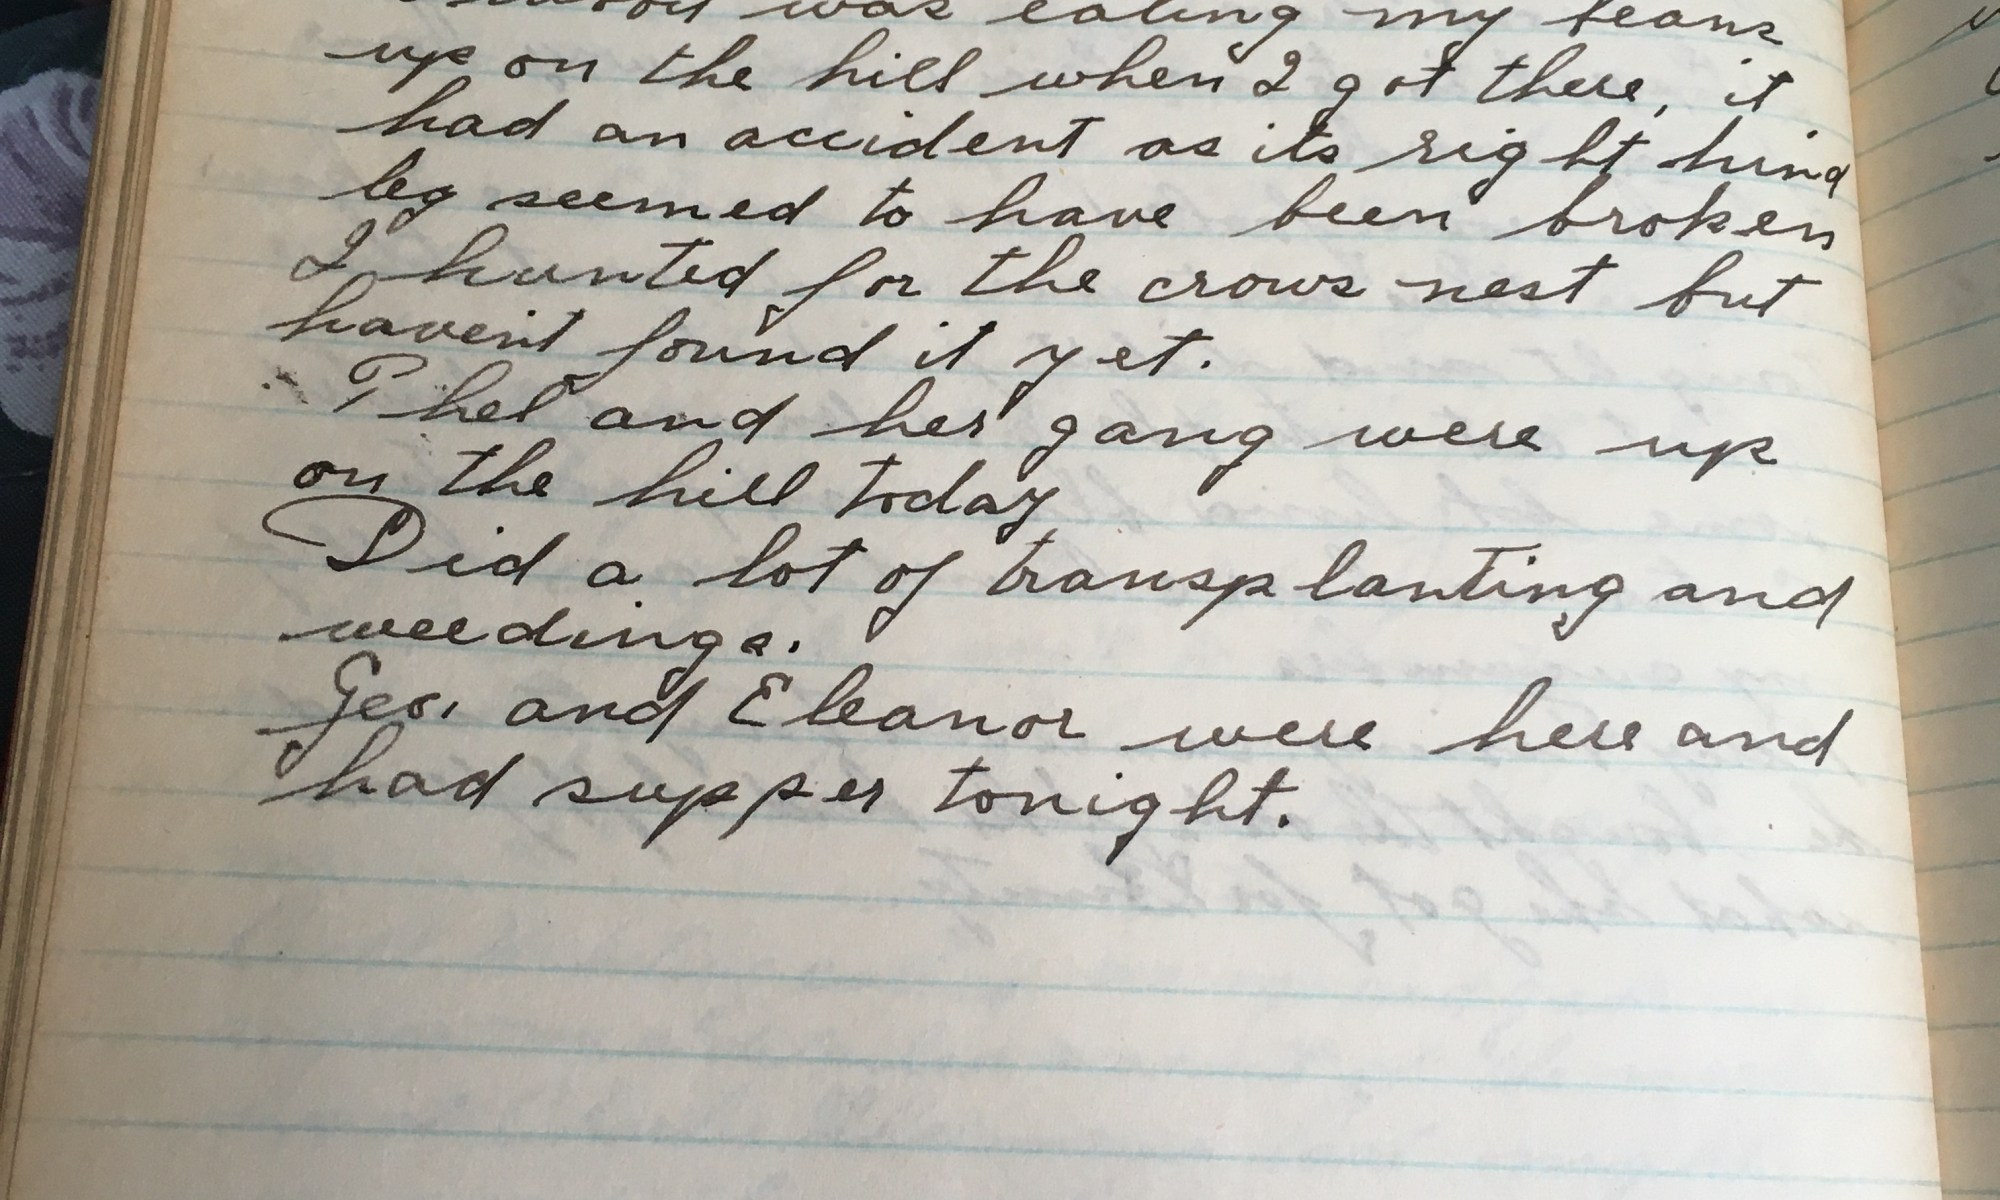 was eating my beans
up on the hill when I got there, it
had an accident as its right hind
leg seemed to have been broken
I hunted for the crows nest but
haven't found it yet.
Phel and her gang were up
on the hill today
Did a lot of transplanting and
weedings.
Geo. and Eleanor were here and
had supper tonight.